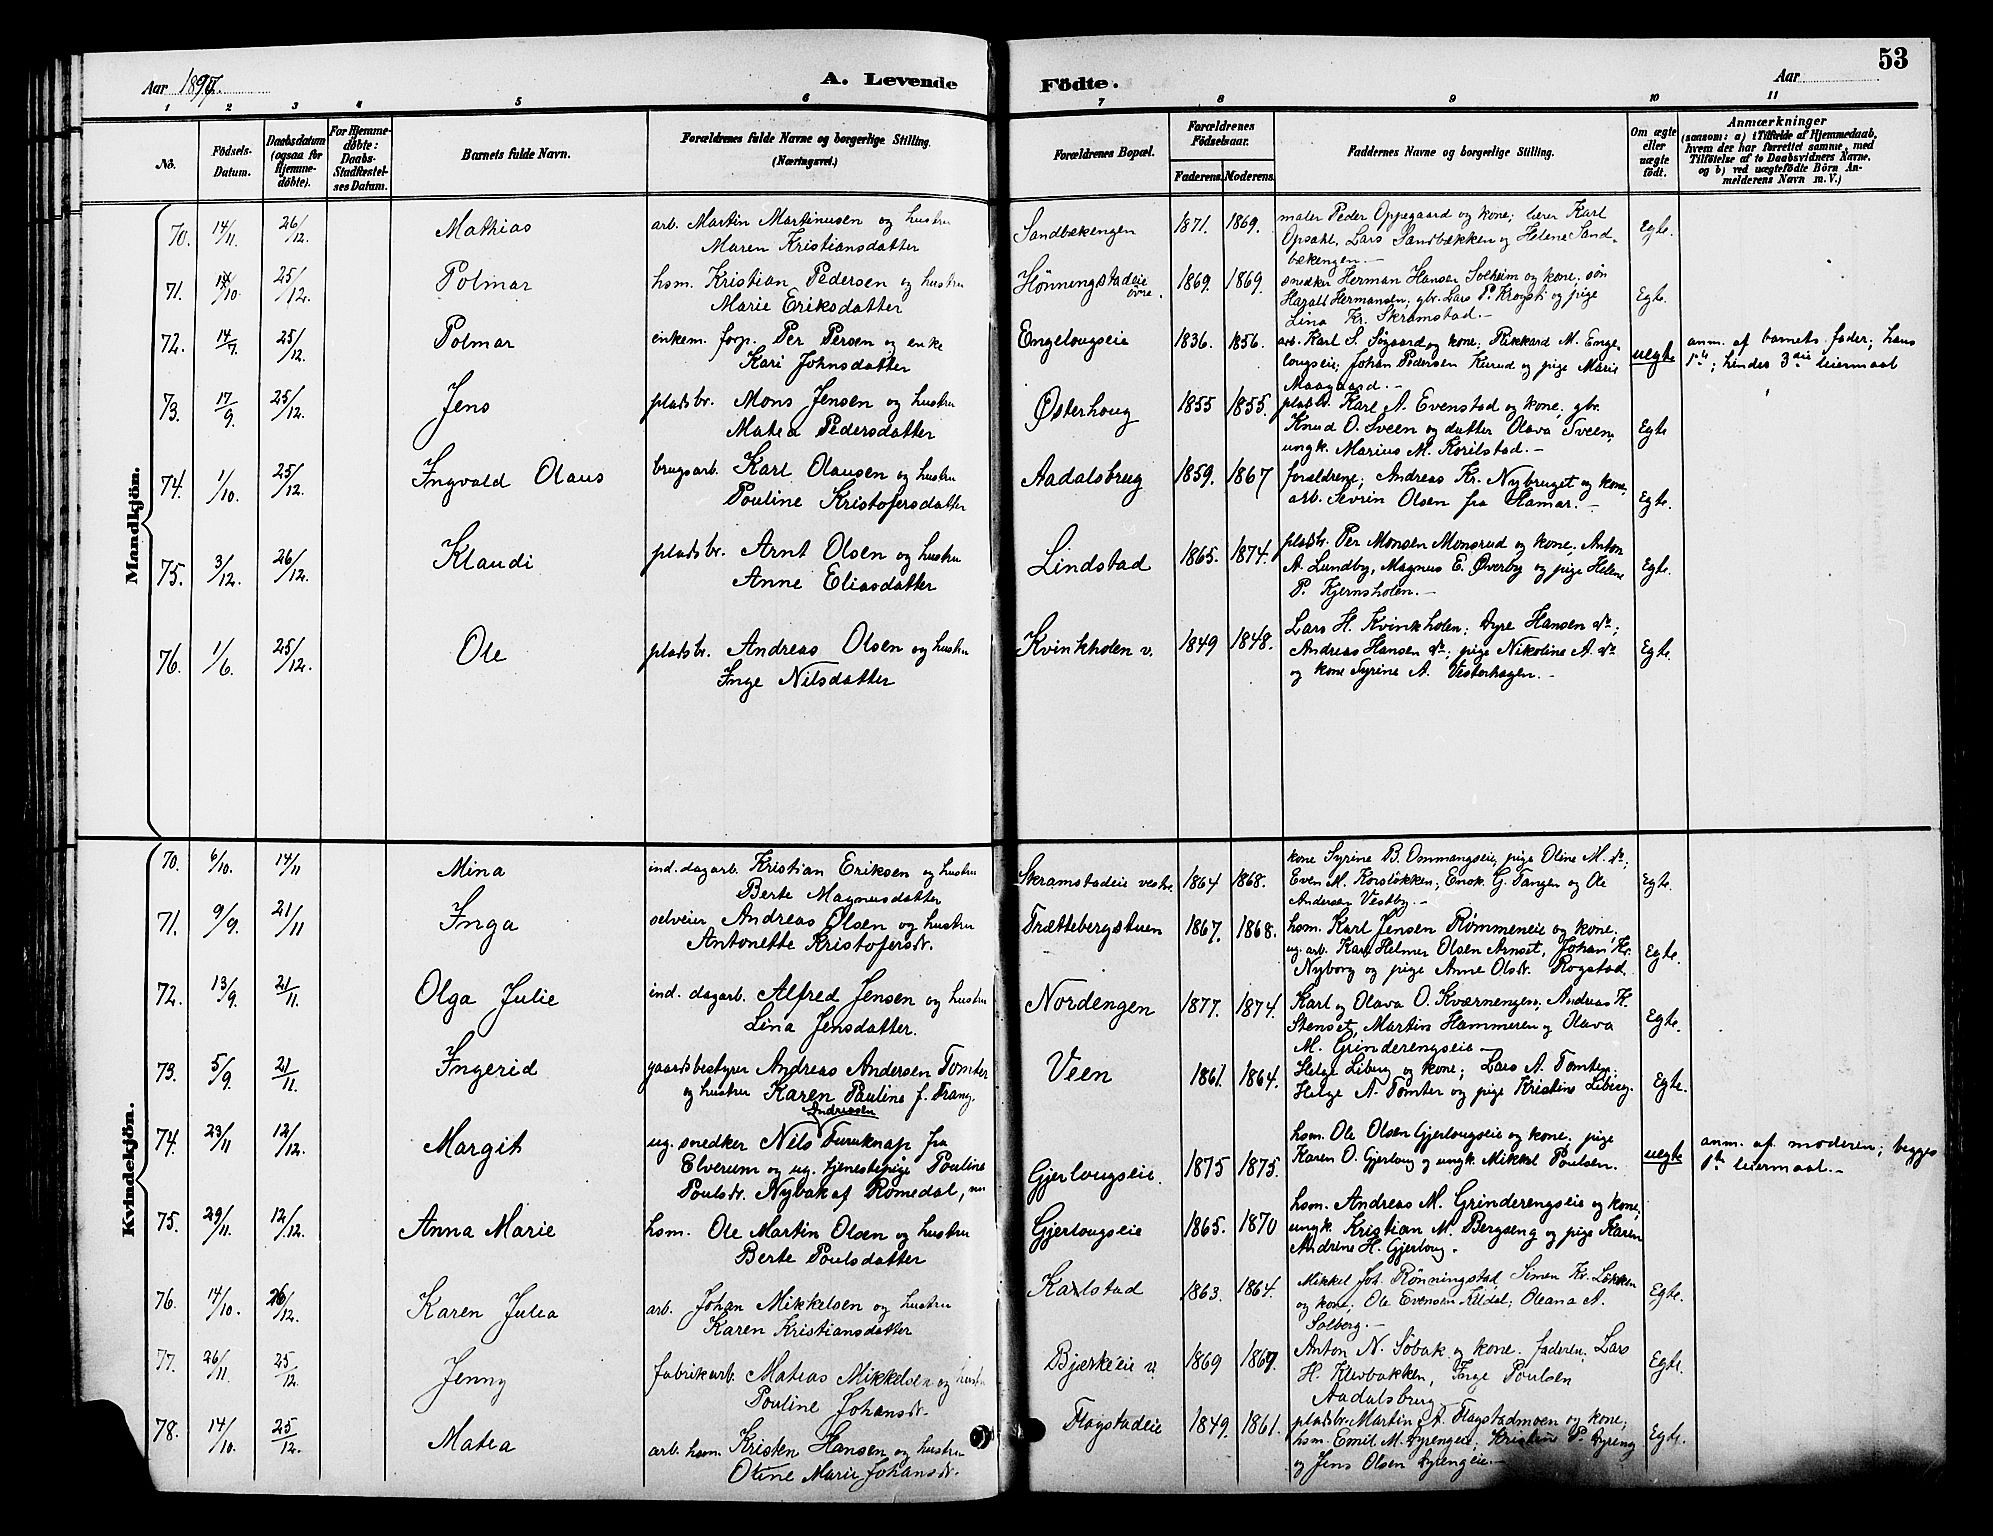 53
Aar 1897.
A. Levende
Födte.
Aar
1 2 3 4 5 6 7 8 9 10 11
No.
Födsels-Datum.
Daabsdatum (ogsaa for Hjemme-døbte).
For Hjemme-døbte: Daabs-Stadfæstel-ses Datum.
Barnets fulde Navn.
Forældrenes fulde Navne og borgerlige Stilling. (Næringsvei.)
Forældrenes Bopæl.
Forældrenes Födselsaar.
Faderens. Moderens.
Faddernes Navne og borgerlige Stilling.
Om ægte eller uægte født.
Anmærkninger
(saasom: a) i Tilfælde af Hjemmedaab,
hvem der har forrettet samme, med
Tilföielse af to Daabsvidners Navne.
og b) ved uægtefödte Börn An-
melderens Navn m. V.)
Mandkjön.
70. 14/11. 26/12. Mathias
arb. Martin Martinusen og hustru
Maren Kristiansdatter
Sandbækengen 1871. 1869.
maler Peder Oppegaard og kone; lærer Karl
Opsahl, Lars Sandbækken og Helene Sand-
bækengen.—
Egte.
71. /10. 25/12. Polmar
hsm. Kristian Pedersen og hustru
Marie Eriksdatter
Hønningstadeie
øvre. 1869. 1869.
snedker Herman Hansen Solheim og kone; søn
Harald Hermansen; gbr. Lars P. Krogsti og pige
Lina Kr. Skramstad.—
Egte.
72. 14/7. 25/12. Polmar
enkem. forp. Per Persen og enke
Kari Johnsdatter
Engelougseie 1836. 1856.
arb. Karl S. Søgaard og kone; Rikkard M. Enge-
lougseie; Johan Pedersen Kurud og pige Marie
Maagaard.—
uegte
anm. af barnets fader; hans
1ste; hendes 3die leiermaal
73. 17/9. 25/12. Jens
pladsbr. Mons Jensen og hustru
Matea Pedersdatter
Østerhoug 1855 1855.
pladsbr. Karl A. Evenstad og kone; gbr.
Knud O. Sveen og datter Olava Sveen,
ungk. Marius M. Korilstad.—
Egte
74. 1/10. 25/12. Ingvald Olaus
brugsarb. Karl Olausen og hustru
Pouline Kristofersdatter
Aadalsbrug 1859. 1867
forældrene; Andreas Kr. Nybruget og kone,
arb. Sevrin Olsen fra Hamar.—
Egte.
75. 3/12. 26/12. Klaudi
pladsbr. Arnt Olsen og hustru
Anne Eliasdatter
Lindstad 1865. 1874.
pladsbr. Per Monsen Monsrud og kone; Anton
A. Lundby, Magnus E. Øverby og pige Helene
P. Kjernsholen.—
Egte.
76. 1/6. 25/12. Ole
pladsbr. Andreas Olsen og hustru
Inge Nilsdatter
Kvinkholen v. 1849 1848.
Lars H. Kvinkholen; Dyre Hansen do;
Andreas Hansen do; pige Nikoline A. do
og kone Syrine A. Vesterhagen.—
Egte.
Kvindekjön.
70. 6/10. 14/11 Mina
ind. dagarb. Kristian Eriksen og hustru
Berte Magnusdatter
Skramstadeie vestre. 1864 1868.
kone Syrine B. Ommangseie, pige Oline M. do;
Even M. Korsløkken; Enok G. Tangen og Ole
Andersen Vestby.—
Egte.
71. 9/9. 21/11 Inga
selveier Andreas Olsen og hustru
Antonette Kristofersdr.
Trættebergstuen 1867. 1868.
hsm. Karl Jensen Rømmeneie og kone.
ug. arb. Karl Helmer Olsen Arnset, Johan Kr.
Nyborg og pige Anne Olsdr. Rogstad.
Egte.
72. 13/9. 21/11. Olga Julie
ind. dagarb. Alfred Jensen og hustru
Lina Jensdatter.
Nordengen 1877. 1874.
Karl og Olava O. Kværnengen, Andreas K.
Stenset, Martin Hammeren og Olava
M. Grinderengseie—
Egte.
73. 5/9. 21/11. Ingerid
gaardsbestyrer Andreas Andersen Tomter
og hustru Karen Pauline f. Frang.
Veen 1861. 1864.
Helge Liberg og kone; Lars A. Tomter;
Helge A. Tomter og pige Kristine Liberg.
Egte.
74. 23/11 12/12. Margit
Andreasen
ug. snedker Nils Furuknap fra
Elverum og ug. tjenestepige Pouline
Poulsdr. Nybak af Romedal, nu
Gjerlougseie. 1875 1875.
hsm. Ole Olsen Gjerlougseie og kone; pige
Karen O. Gjerloug og ungk. Mikkel Poulsen.
uegte
anm. af moderen; begges
1ste leiermaal.—
75. 29/11. 12/12. Anna Marie
hsm. Ole Martin Olsen og hustru
Berte Poulsdatter
Gjerlougseie 1865. 1870
hsm. Andreas M. Grinderengseie og kone,
ungk. Kristian M. Bergseng og pige Karen
Andrine H. Gjerloug.
Egte.
76. 14/10. 26/12. Karen Julia
arb. Johan Mikkelsen og hustru
Karen Kristiansdatter
Karlstad 1863. 1864.
Mikkel Joh. Rønningstad, Simen Kr. Løkken
og kone; Ole Evensen Kildal; Oleana A.
Solberg.—
Egte.
77. 26/11. 25/12. Jenny
fabrikarb. Matias Mikkelsen og hustru
Pouline Johansdr.
Bjerkeeie v. 1869 1867.
Anton N. Søbak og kone. faderen, Lars
H. Klevbakken, Inge Poulsen
Aadalsbrug
Egte.
78. 14/10. 25/12. Matea
arb. hsm. Kristen Hansen og hustru
Oline Marie Johansdr.
Flagstadeie 1849. 1861.
pladsbr. Martin A. Flagstadmoen og kone;
hsm. Emil M. Dyrengeie; Kristin P. Dyreng
og Jens Olsen Dyrengeie.—
Egte.